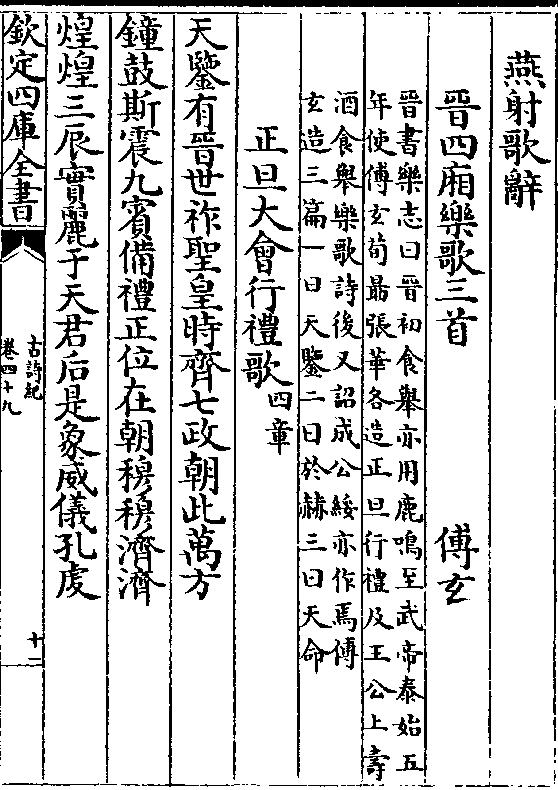 燕射歌辭
晉四廂樂歌三首 傅玄
晉書樂志曰晉初食舉亦用鹿鳴至武帝泰始五
年使傅玄荀勗張華各造正旦行禮及王公上壽
酒食舉樂歌詩後又詔成公綏亦作焉傅
玄造三篇一曰天鑒二曰於赫三曰天命
正旦大會行禮歌四章
天鑒有晉世祚聖皇時齊七政朝此萬方
鐘鼓斯震九賓備禮正位在朝穆穆濟濟
煌煌三辰實麗于天君后是象威儀孔虔
欽定四庫全書
古詩紀
卷四十九
十二